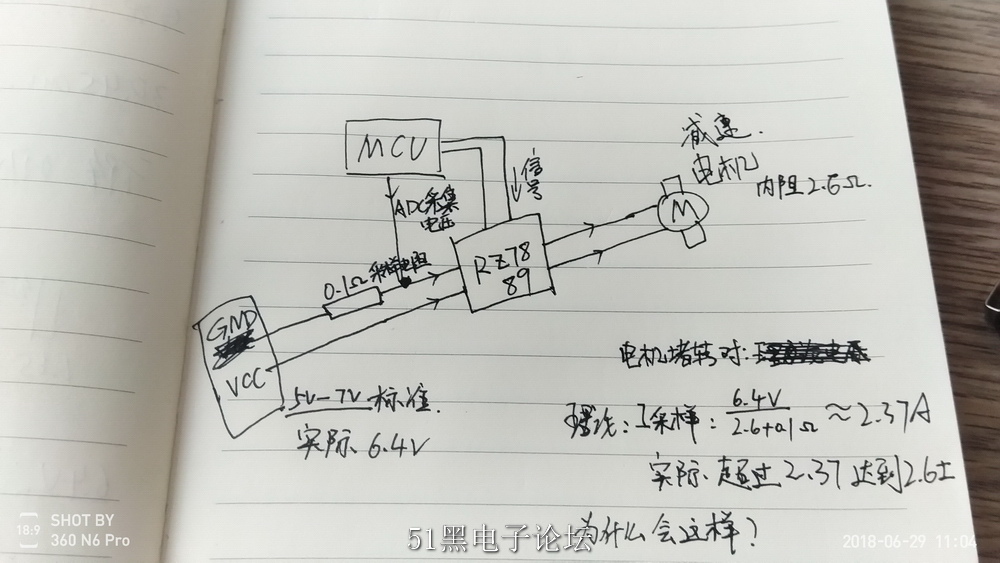 MCU
ADC采集
电压
信号
减速
电机
内阻2.6Ω.
M
RZ78
89
0.1Ω采样电阻
GND
VCC
5V-7V 标准.
实际 6.4V
电机堵转时:
理论: I采样: 6.4V
2.6+0.1Ω ≈ 2.37A
实际 超过 2.37 达到2.6
为什么会这样?
18:9
SHOT BY
360 N6 Pro
51黑电子论坛
2018-06-29 11:04